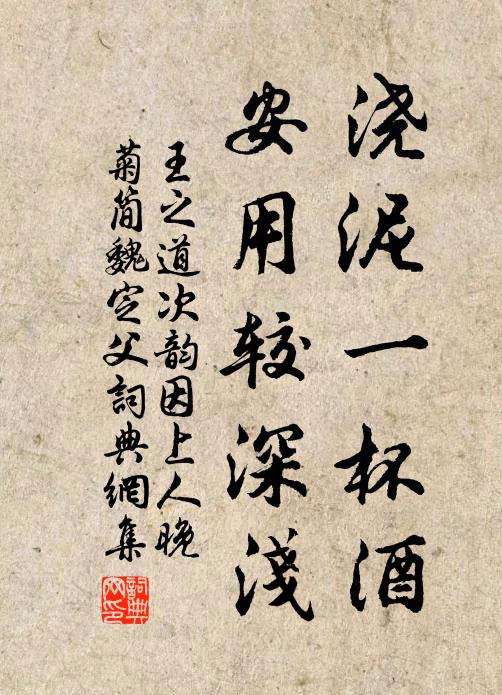 浇泥一杯酒
安用较深淺
王之道次韵因上人晚
菊簡魏定父詞典網集
詞典
网印